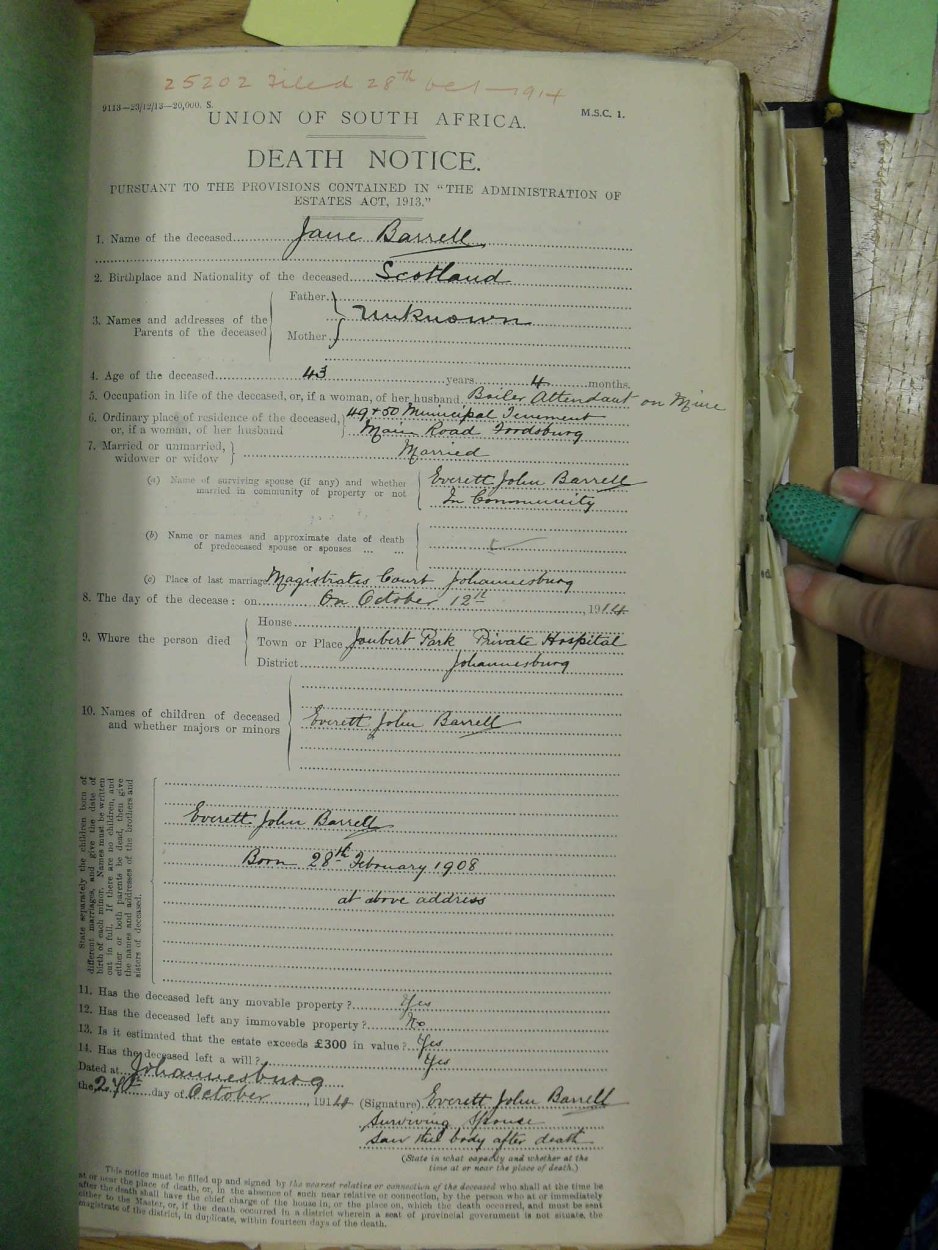 25202 Filed 28th Oct 1914
9113—23/12/13—20,000. S.
M.S.C. 1.
UNION OF SOUTH AFRICA.
DEATH NOTICE.
PURSUANT TO THE PROVISIONS CONTAINED IN "THE ADMINISTRATION OF
ESTATES ACT, 1913."
1. Name of the deceased Jane Barrell
2. Birthplace and Nationality of the deceased Scotland
3. Names and addresses of the
Parents of the deceased
Father
Unknown
Mother
4. Age of the deceased 43 years 4 months.
5. Occupation in life of the deceased, or, if a woman, of her husband Boiler Attendant on Mine
6. Ordinary place of residence of the deceased, 49 + 50 Municipal Tenement
or, if a woman, of her husband Main Road Fordsburg
7. Married or unmarried,
widower or widow
Married
(a) Name of surviving spouse (if any) and whether
married in community of property or not
Everett John Barrell
In Community
(b) Name or names and approximate date of death
of predeceased spouse or spouses ... ...
(c) Place of last marriage Magistrates Court Johannesburg
8. The day of the decease: on On October 12th, 1914
9. Where the person died
House
Town or Place Joubert Park Private Hospital
District Johannesburg
10. Names of children of deceased
and whether majors or minors
Everett John Barrell
State separately the children born of
different marriages, and give the date of
birth of each minor. Names must be written
out in full. If there are no children, and
either or both parents be dead, then give
the names and addresses of the brothers and
sisters of deceased.
Everett John Barrell
Born 28th February 1908
at above address
11. Has the deceased left any movable property? Yes
12. Has the deceased left any immovable property? No
13. Is it estimated that the estate exceeds £300 in value? Yes
14. Has the deceased left a will? Yes
Dated at Johannesburg
the 27th day of October, 1914 (Signature) Everett John Barrell
Surviving Spouse
Saw the body after death
(State in what capacity and whether at the
time at or near the place of death.)
This notice must be filled up and signed by the nearest relative or connection of the deceased who shall at the time be
at or near the place of death, or, in the absence of such near relative or connection, by the person who at or immediately
after the death shall have the chief charge of the house in, or the place on, which the death occurred, and must be sent
either to the Master, or, if the death occurred in a district wherein a seat of provincial government is not situate, the
magistrate of the district, in duplicate, within fourteen days of the death.